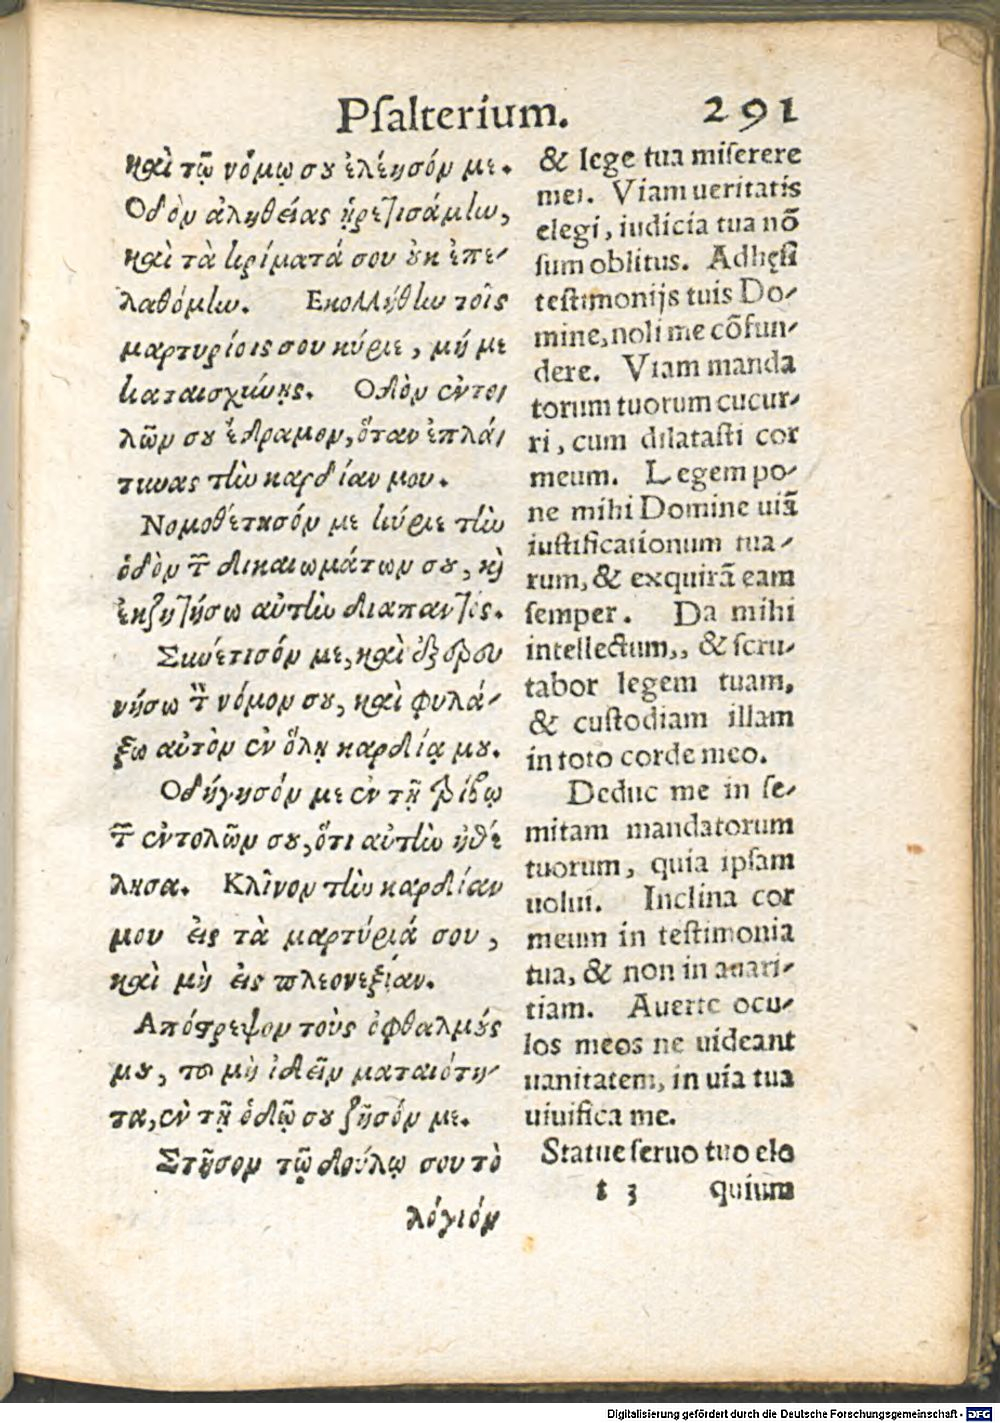 Pſalterium. 291
καὶ τῷ νόμῳ σου ἐλέησόν με.
Οδὸν ἀληθείας ᾑρετισάμην,
καὶ τὰ κρίματά σου οὐκ ἐπε-
λαθόμην. Εκολλήθην τοῖς
μαρτυρίοις σου κύριε, μή με
καταισχύνῃς. Οδὸν ἐντο-
λῶν σου ἔδραμον, ὅταν ἐπλά-
τυνας τὴν καρδίαν μου.
Νομοθέτησόν με κύριε τὴν
ὁδὸν τῶν δικαιωμάτων σου, καὶ
ἐκζητήσω αὐτὴν διαπαντός.
Συνέτισόν με, καὶ ἐξερευ
νήσω τὸν νόμον σου, καὶ φυλά-
ξω αὐτὸν ἐν ὅλῃ καρδίᾳ μου.
Οδήγησόν με ἐν τῇ τρίβῳ
τῶν ἐντολῶν σου, ὅτι αὐτὴν ἠθέ
λησα. Κλῖνον τὴν καρδίαν
μου εἰς τὰ μαρτύριά σου,
καὶ μὴ εἰς πλεονεξίαν.
Απόστρεψον τοὺς ὀφθαλμούς
μου, τοῦ μὴ ἰδεῖν ματαιότη-
τα, ἐν τῇ ὁδῷ σου ζῆσόν με.
Στῆσον τῷ δούλῳ σου τὸ
λόγιόν
& lege tua miſerere
mei. Viam ueritatis
elegi, iudicia tua nō
ſum oblitus. Adhęſi
teſtimonijs tuis Do-
mine, noli me cōfun-
dere. Viam manda
torum tuorum cucur-
ri, cum dilataſti cor
meum. Legem po-
ne mihi Domine uiā
iuſtificationum tua-
rum, & exquirā eam
ſemper. Da mihi
intellectum,, & ſcru-
tabor legem tuam,
& cuſtodiam illam
in toto corde meo.
Deduc me in ſe-
mitam mandatorum
tuorum, quia ipſam
uolui. Inclina cor
meum in teſtimonia
tua, & non in auari-
tiam. Auerte ocu-
los meos ne uideant
uanitatem, in uia tua
uiuifica me.
Statue ſeruo tuo elo
t 3 quium
Digitalisierung gefördert durch die Deutsche Forschungsgemeinschaft - DFG